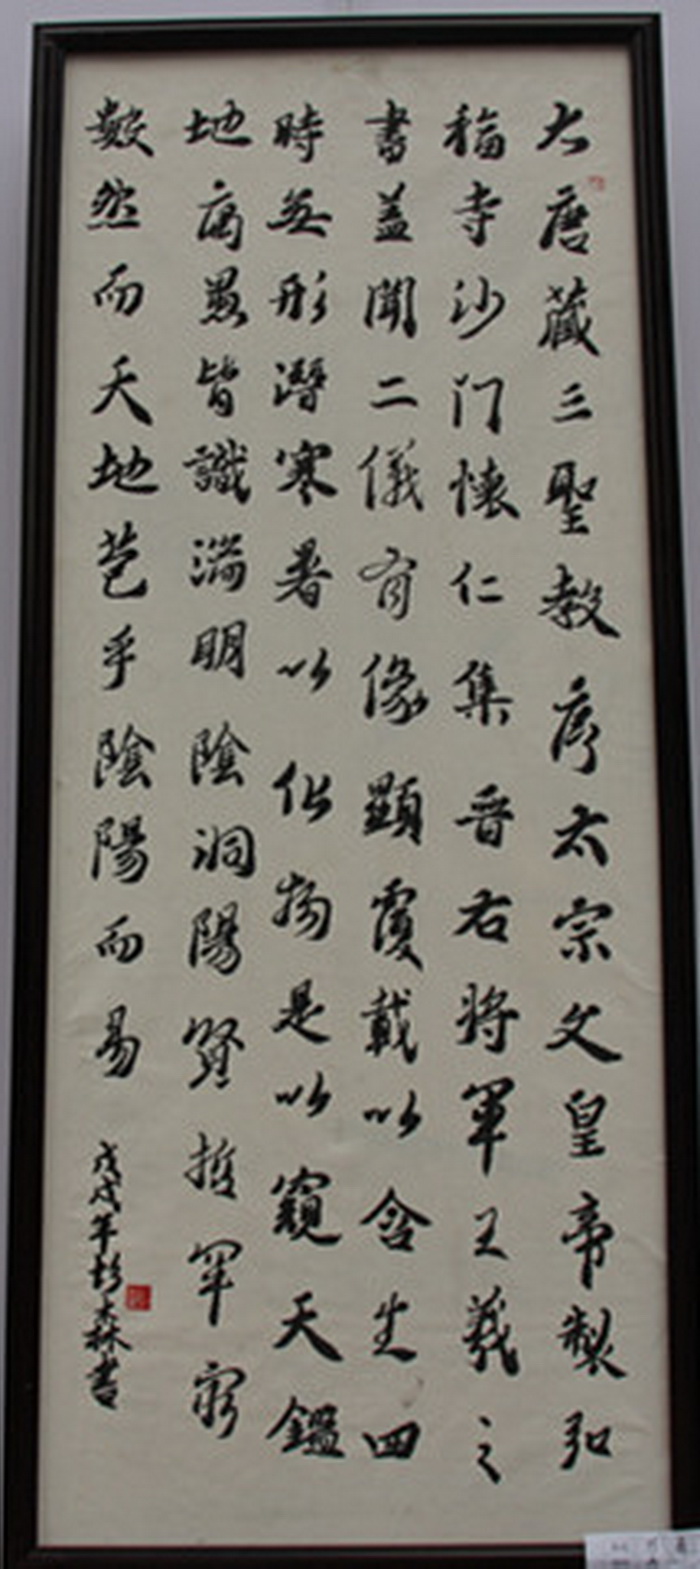 大唐藏三聖教序太宗文皇帝製弘
福寺沙门懷仁集晉右将軍王羲之
書盖聞二儀有像顯覆載以含生四
時無形潛寒暑以化物是以窺天鑑
地庸愚皆識端明陰洞陽賢哲罕窮
數然而天地苞乎陰陽而易
戊戌年書